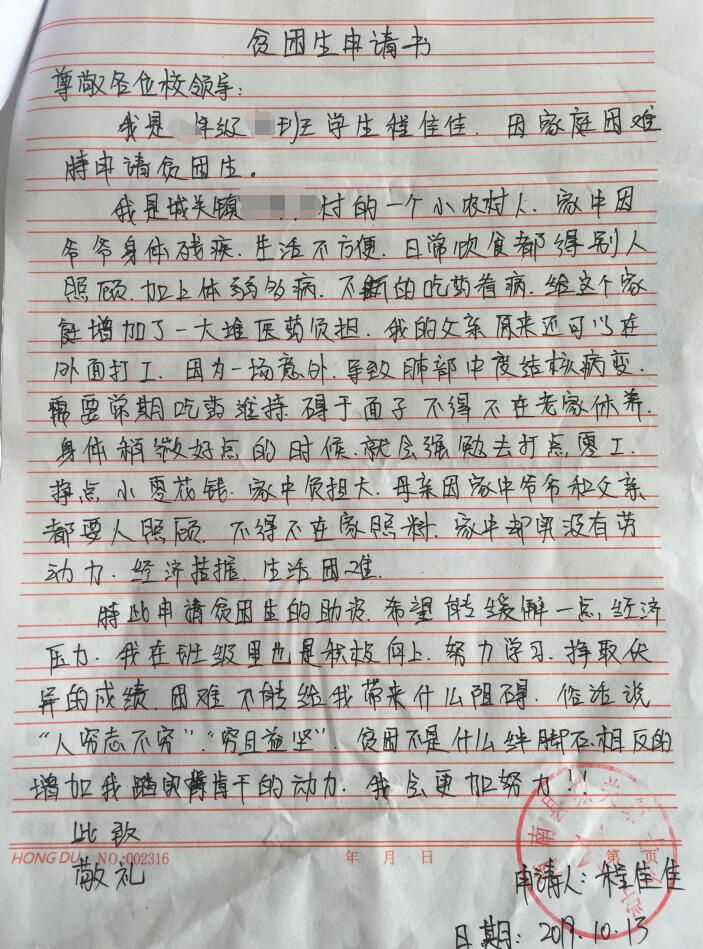 贫困生申请书
尊敬各位校领导：
我是年级班学生程佳佳．因家庭困难
特申请贫困生。
我是城关镇村的一个小农村人．家中因
爷爷身体残疾．生活不方便．日常饮食都得别人
照顾．加上体弱多病．不断的吃药看病．给这个家
庭增加了一大堆医药负担．我的父亲原来还可以在
外面打工．因为一场意外．导致肺部中度结核病变．
需要常期吃药维持．碍于面子不得不在老家休养．
身体稍微好点的时候．就会强勉去打点零工．
挣点小零花钱．家中负担大．母亲因家中爷爷和父亲
都要人照顾．不得不在家照料．家中却实没有劳
动力．经济拮据．生活困难．
特此申请贫困生的助学．希望能缓解一点．经济
压力．我在班级里也是积极向上．努力学习．择取优
异的成绩．困难不能给我带来什么阻碍．俗话说
“人穷志不穷”．“穷且益坚”．贫困不是什么绊脚石．相反的
增加我踏实肯干的动力．我会更加努力！！
此致
HONG DU NO:002316 年 月 日 第 页
敬礼
申请人：程佳佳
日期：2019.10.13